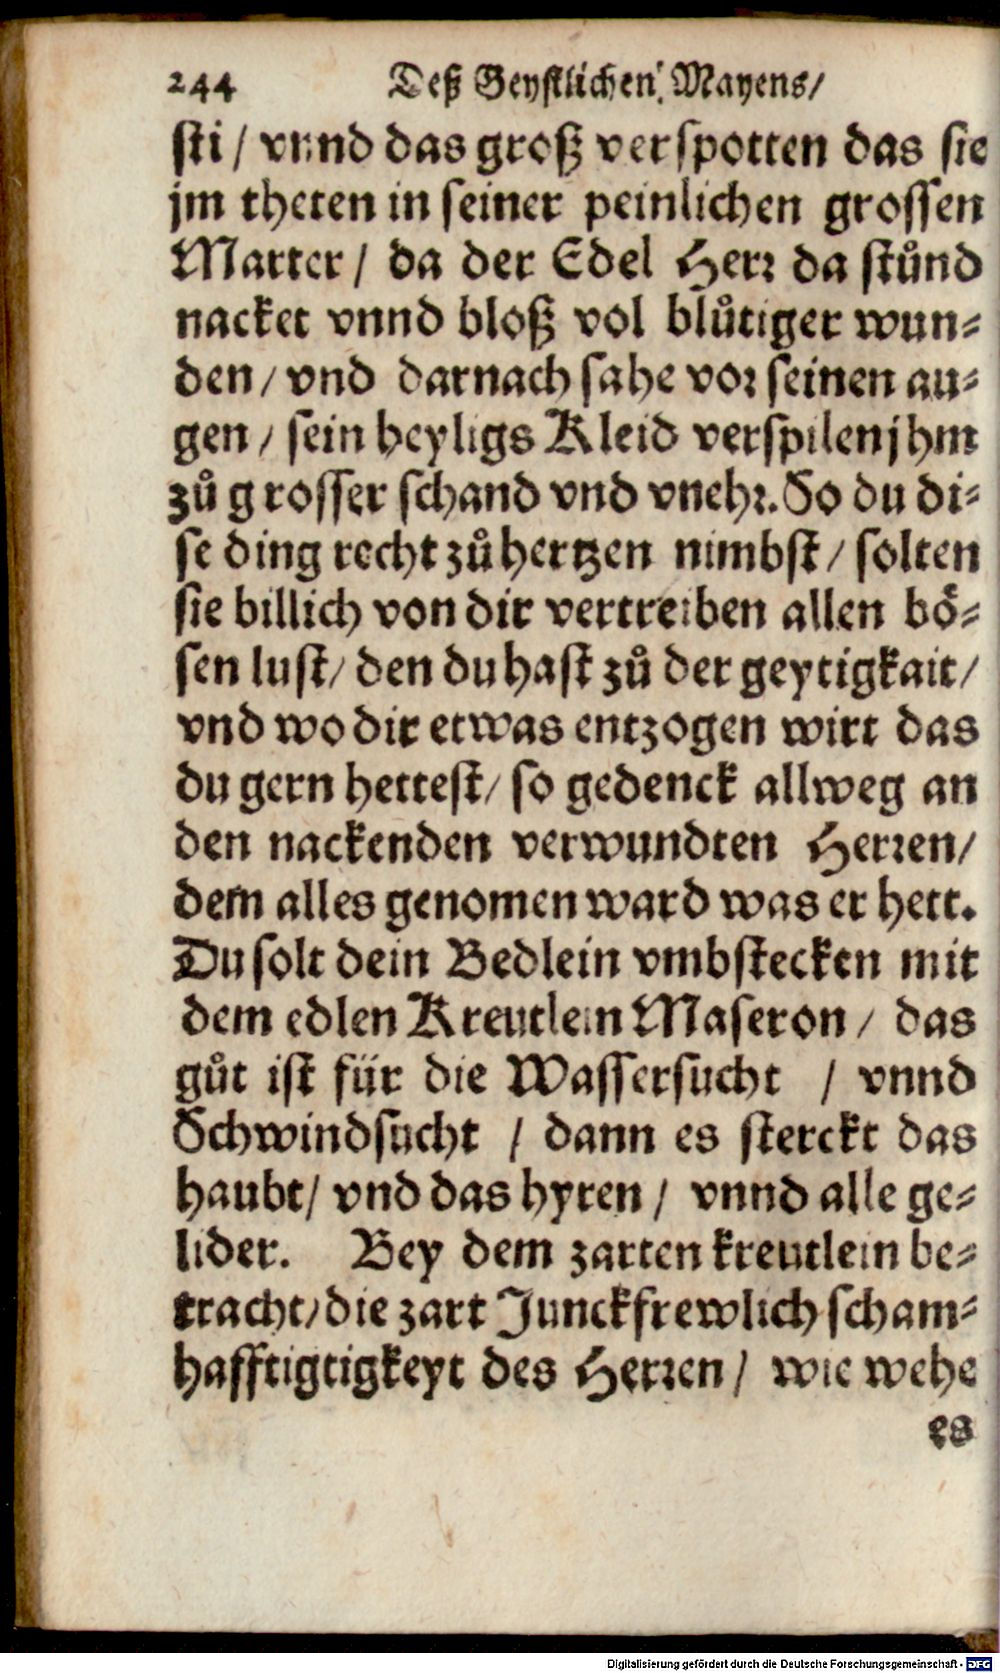 244 Deß Geystlichen Mayens/
sti / vnnd das groß verspotten das sie
jm theten in seiner peinlichen grossen
Marter / da der Edel Herr da stůnd
nacket vnnd bloß vol blůtiger wun-
den / vnd darnach sahe vor seinen au-
gen / sein heyligs Kleid verspilen jhm
zů grosser schand vnd vnehr. So du di-
se ding recht zů hertzen nimbst / solten
sie billich von dir vertreiben allen bö-
sen lust / den du hast zů der geytigkait /
vnd wo dir etwas entzogen wirt das
du gern hettest / so gedenck allweg an
den nackenden verwundten Herren /
dem alles genomen ward was er hett.
Du solt dein Bedlein vmbstecken mit
dem edlen Kreutlein Maseron / das
gůt ist für die Wassersucht / vnnd
Schwindsucht / dann es sterckt das
haubt / vnd das hyren / vnnd alle ge-
lider. Bey dem zarten kreutlein be-
tracht / die zart Junckfrewlich scham-
hafftigtigkeyt des Herren / wie wehe
es
Digitalisierung gefördert durch die Deutsche Forschungsgemeinschaft - DFG